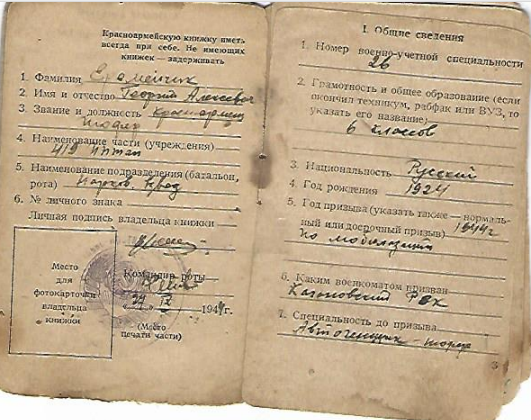 Красноармейскую книжку иметь
всегда при себе. Не имеющих
книжек — задерживать
1. Фамилия
2. Имя и отчество Георгий Алексеевич
3. Звание и должность Красноармеец
4. Наименование части (учреждения)
419
5. Наименование подразделения (батальон,
рота)
6. № личного знака
Личная подпись владельца книжки
Место
для
фотокарточки
владельца
книжки
Командир роты
194 г.
(Место
печати части)
I. Общие сведения
1. Номер военно-учетной специальности
26
2. Грамотность и общее образование (если
окончил техникум, рабфак или ВУЗ, то
указать его название)
6 классов
3. Национальность Русский
4. Год рождения 1924
5. Год призыва (указать также — нормаль-
ный или досрочный призыв) 1944 г
по мобилизации
6. Каким военкоматом призван
РВК
7. Специальность до призыва
3